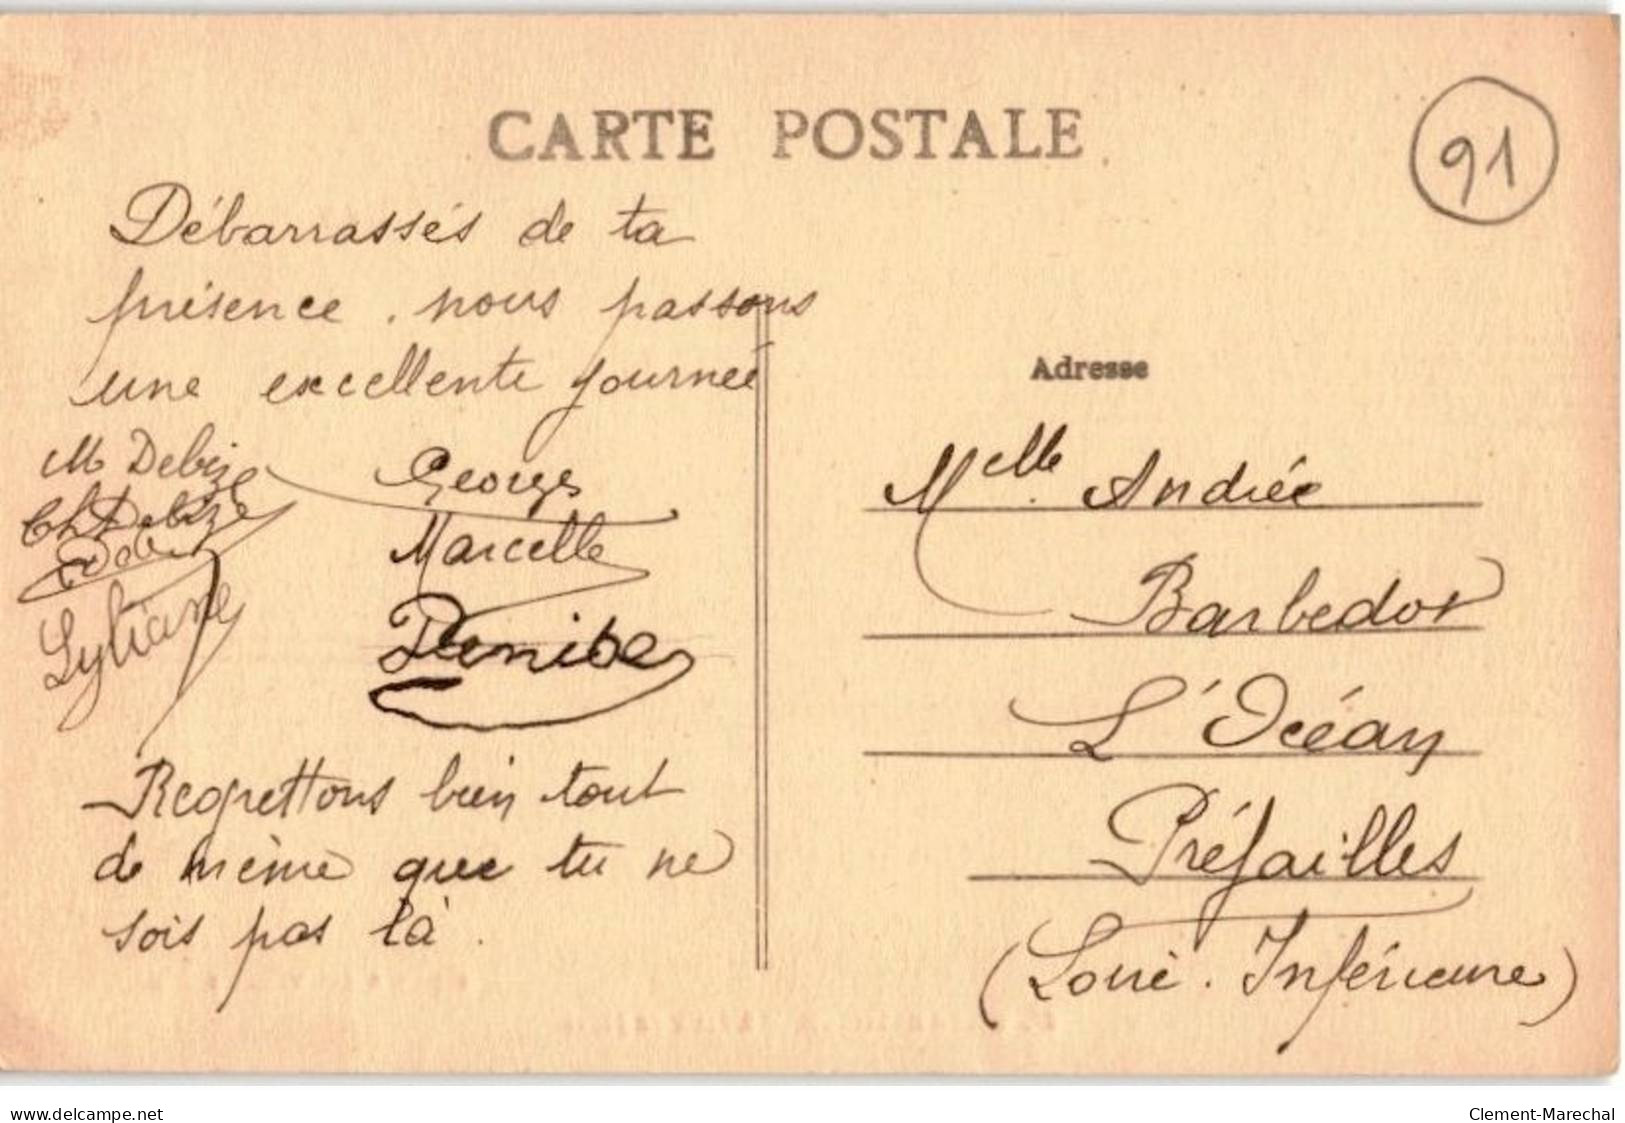 CARTE POSTALE
91
Débarrassés de ta
présence. nous passons
une excellente journée
M Debize
Ch Debize
Lyliane
Georges
Marcelle
Denise
Regrettons bien tout
de même que tu ne
sois pas là.
Adresse
Melle. Andrée
Barbedor
L'Océan
Préfailles
(Loire. Inférieure)
www.delcampe.net
Clement-Marechal